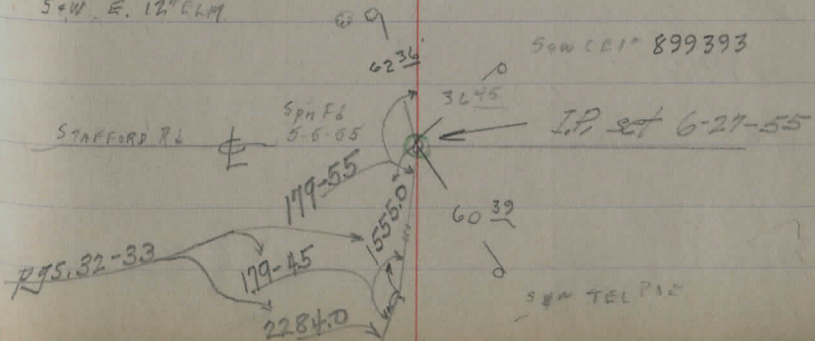 S&W. E. 12" ELM
62 36
S&W CEI 899393
36 45
STAFFORD Rd ℄
Spn Fd
5-5-55
I.P. set 6-27-55
179-55
1555.0
60 39
pgs. 32-33
179-45
2284.0
S&N TEL POLE